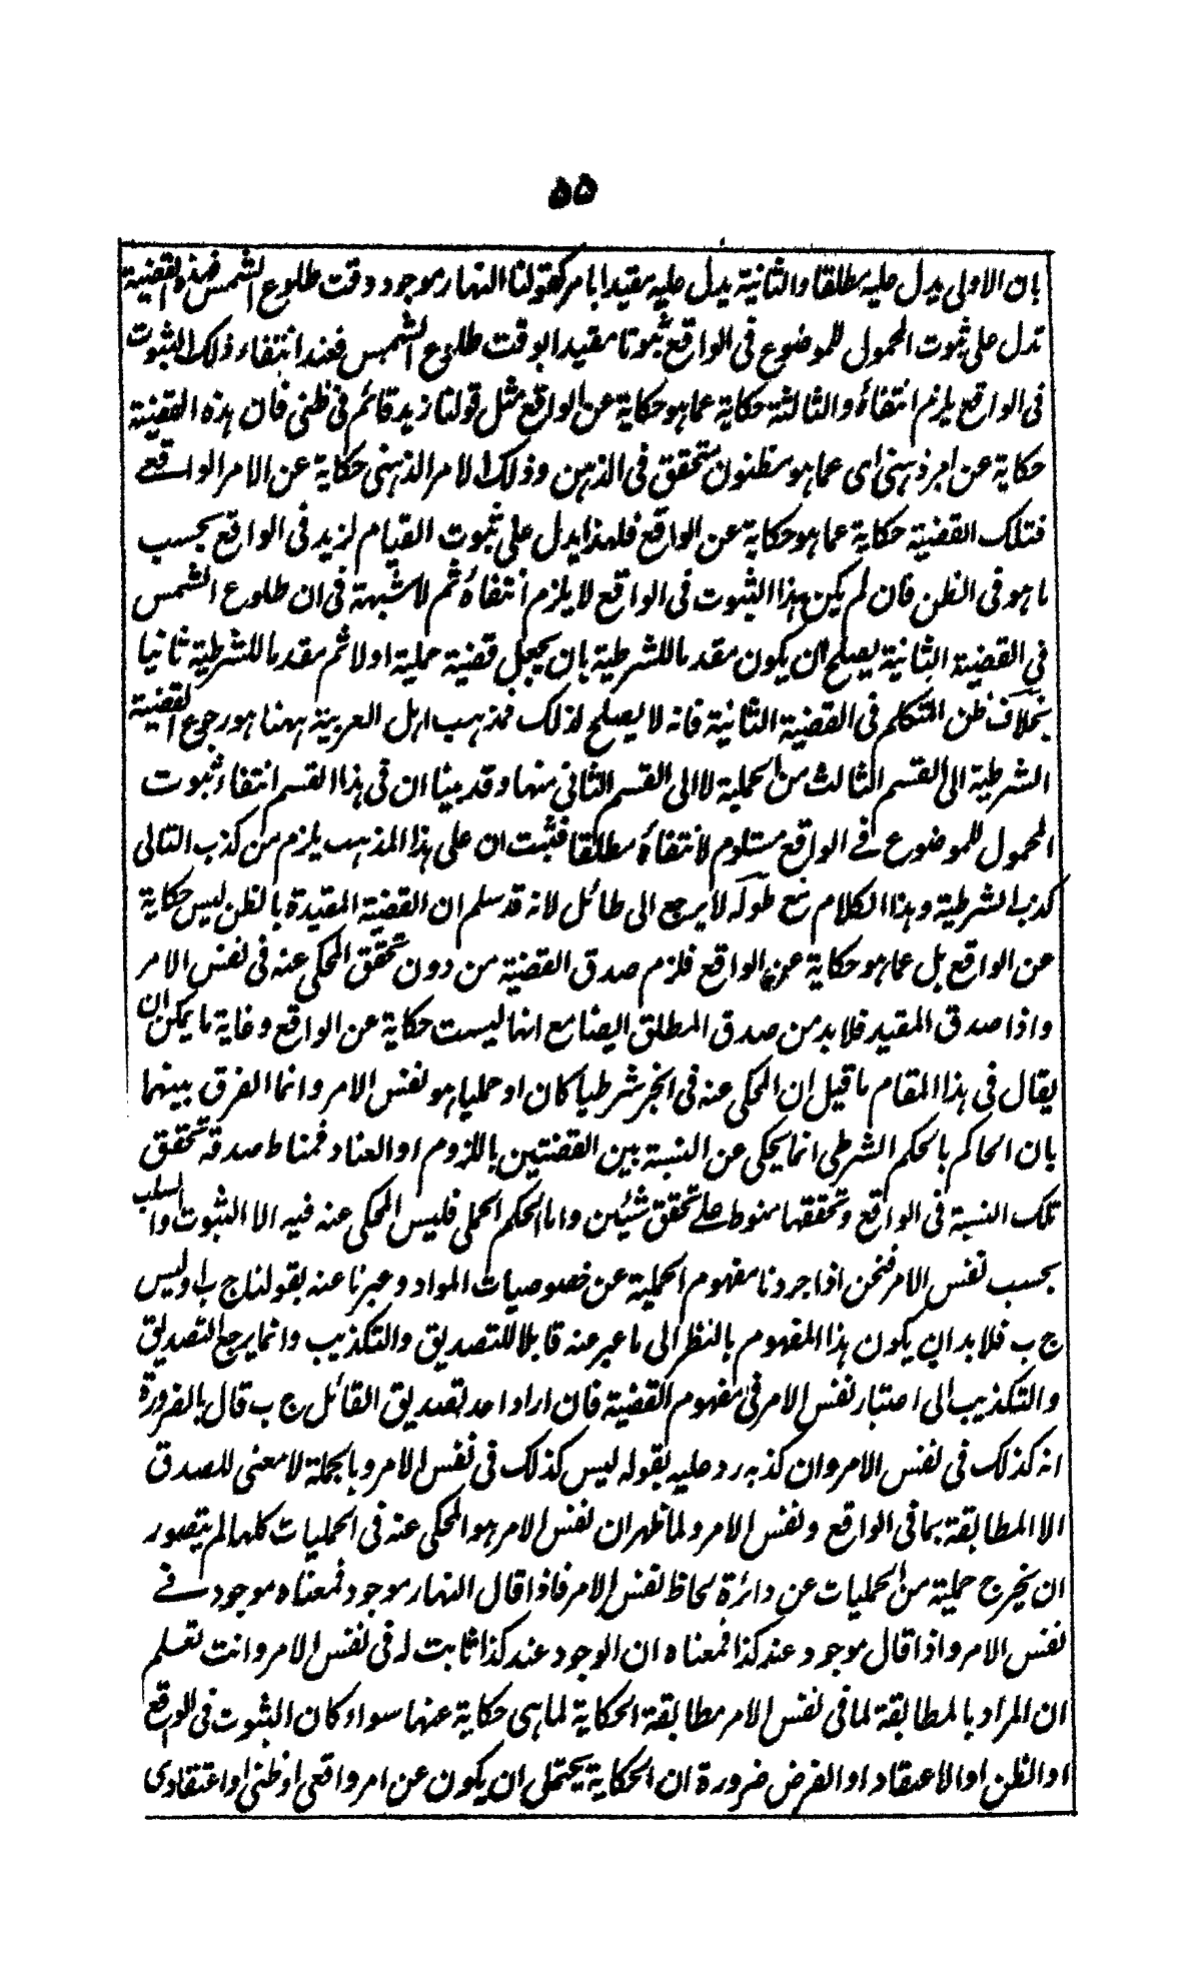 ۵۵
بان الاولى يدل عليه مطلقا والثانية يدل عليه مقيدا بامر كقولنا النهار موجود وقت طلوع الشمس فهذه القضية
تدل على ثبوت المحمول للموضوع فى الواقع ثبوتا مقيدا بوقت طلوع الشمس فعند انتفاء ذلك الثبوت
فى الواقع يلزم انتفاؤه والثالثة حكاية عما هو حكاية عن الواقع مثل قولنا زيد قائم فى ظنى فان هذه القضية
حكاية عن امر ذهنى اى عما هو مظنون متحقق فى الذهن وذلك الامر الذهنى حكاية عن الامر الواقعے
فتلك القضية حكاية عما هو حكاية عن الواقع فلهذا يدل على ثبوت القيام لزيد فى الواقع بحسب
ما هو فى الظن فان لم يكن هذا الثبوت فى الواقع لا يلزم انتفاؤه ثم لا شبهة فى ان طلوع الشمس
في القضية الثانية يصلح ان يكون مقدما للشرطية بان يجعل قضية حملية اولا ثم مقدما للشرطية ثانيا
بخلاف ظن المتكلم فى القضية الثانية فانه لا يصلح لذلك فمذهب اهل العربية ههنا هو رجوع القضية
الشرطية الى القسم الثالث من الحملية لا الى القسم الثانى منها وقد بينا ان فى هذا القسم انتفاء ثبوت
المحمول للموضوع فے الواقع مستلزم لانتفاؤه مطلقا فثبت ان على هذا المذهب يلزم من كذب التالى
كذب الشرطية وهذا الكلام مع طوله لا يرجع الى طائل لانه قد سلم ان القضية المقيدة بالظن ليس حكاية
عن الواقع بل عما هو حكاية عن الواقع فلزم صدق القضية من دون تحقق المحكى عنه فى نفس الامر
واذا صدق المقيد فلا بد من صدق المطلق ايضا مع انها ليست حكاية عن الواقع وغاية ما يمكن ان
يقال فى هذا المقام ما قيل ان المحكى عنه فى الخبر شرطيا كان او حمليا هو نفس الامر وانما الفرق بينهما
بان الحاكم بالحكم الشرطى انما يحكى عن النسبة بين القضتين باللزوم او العناد فمناط صدقه تحقق
تلك النسبة فى الواقع وتحققها منوط على تحقق شيئين واما الحكم الحملى فليس المحكى عنه فيه الا الثبوت والسلب
بحسب نفس الامر فنحن اذا جردنا مفهوم الحملية عن خصوصيات المواد وعبرنا عنه بقولنا ج ب اوليس
ج ب فلا بد ان يكون هذا المفهوم بالنظر الى ما عبر عنه قابلا للتصديق والتكذيب وانما يرجع التصديق
والتكذيب الى اعتبار نفس الامر فى مفهوم القضية فان اراد احد تصديق القائل ج ب قال بالضرورة
انه كذلك فى نفس الامر وان كذبه رد عليه بقوله ليس كذلك فى نفس الامر وبالجملة لا معنى للصدق
الا المطابقة بما فى الواقع ونفس الامر ولما ظهر ان نفس الامر هو المحكى عنه فى الحمليات كلها لم يتصور
ان يخرج حملية من الحمليات عن دائرة لحاظ نفس الامر فاذا قال النهار موجود فمعناه موجود فے
نفس الامر واذا قال موجود عند كذا فمعناه ان الوجود عند كذا ثابت له فى نفس الامر وانت تعلم
ان المراد بالمطابقة لما فى نفس الامر مطابقة الحكاية لما هى حكاية عنها سواء كان الثبوت فى الواقع
او الظن او الاعتقاد او الفرض ضرورة ان الحكاية يحتمل ان يكون عن امر واقعى او ظنى او اعتقادى